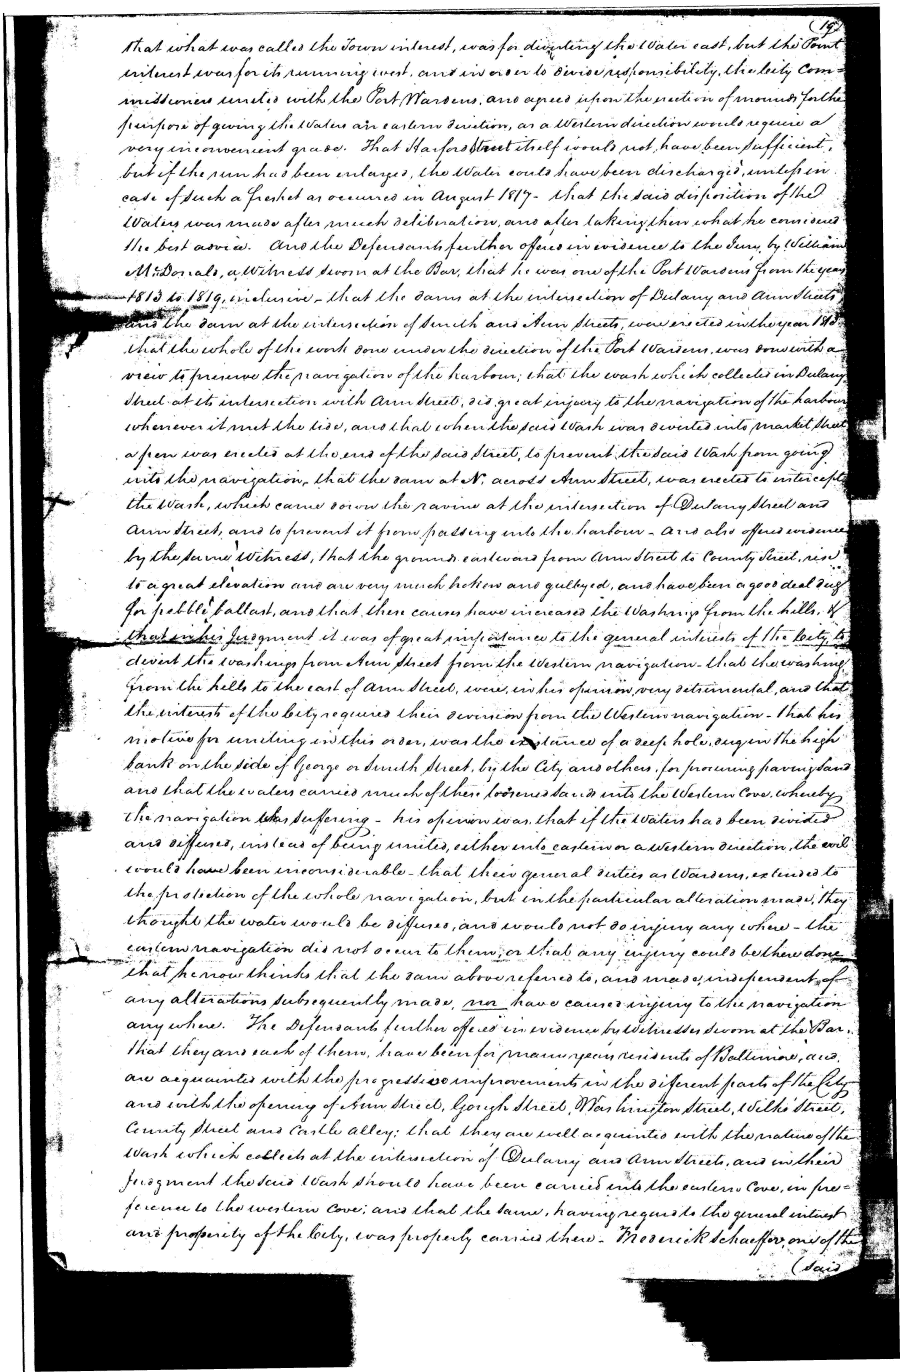 (19)
that what was called the Town interest, was for diverting the Water east, but the Point
interest was for its running west, and in order to divide responsibility, the City Com=
missioners united with the Port Wardens, and agreed upon the erection of mounds for the
purpose of giving the Waters an eastern direction, as a Western direction would require a
very inconvenient grade. That Harford Street itself would not have been sufficient,
but if the run had been enlarged, the Water could have been discharged, unless in
case of such a freshet as occurred in August 1817 - that the said disposition of the
Waters was made after much deliberation, and after taking then what he considered
the best advice. And the Defendants further offered in evidence to the Jury, by William
McDonald, a Witness sworn at the Bar, that he was one of the Port Wardens from the year
1813 to 1819, inclusive - that the dams at the intersection of Dulany and Ann Streets,
and the dam at the intersection of Smith and Ann Streets, were erected in the year
that the whole of the work done under the direction of the Port Wardens, was done with a
view to preserve the navigation of the harbour; that the wash which collected in Dulany
Street at its intersection with Ann Street, did great injury to the navigation of the harbour
whenever it met the tide, and that when the said Wash was diverted into market Street
a pen was erected at the end of the said Street, to prevent the said Wash from going
into the navigation, that the dam at N. across Ann Street, was erected to intercept
the Wash, which came down the ravine at the intersection of Dulany Street and
Ann Street, and to prevent it from passing into the harbour - and also offered evidence
by the same Witness, that the grounds eastward from Ann Street to County Street, rise
to a great elevation and are very much broken and gullyed, and have been a good deal dug
for pebble ballast, and that these causes have increased the Washings from the hills, &
that in his Judgment it was of great importance to the general interests of the City, to
divert the washings from Ann Street from the Western navigation - that the washing
from the hills to the east of Ann Street, were, in his opinion, very detrimental, and that
the interests of the City required their diversion from the Western navigation - that his
motive for uniting in this order, was the existance of a deep hole, dug in the high
bank on the side of George or Smith Street, by the City and others, for procuring paving Sand
and that the waters carried much of these loosened Sands into the Western Cove, whereby
the navigation was suffering - his opinion was, that if the Waters had been divided
and diffused, instead of being united, either into eastern or a Western direction, the evil
would have been inconsiderable - that their general duties as Wardens, extended to
the protection of the whole navigation, but in the particular alteration made, they
thought the water would be diffused, and would not do injury any where - the
eastern navigation did not occur to them, or that any injury could be there done
that he now thinks that the dam above referred to, and made, independent of
any alterations subsequently made, nor have caused injury to the navigation
any where. The Defendants further offered in evidence by Witnesses sworn at the Bar,
that they and each of them, have been for many years residents of Baltimore, and
are acquainted with the progressive improvements in the different parts of the City
and with the opening of Ann Street, Gough Street, Washington Street, Wilks Street,
County Street and Castle alley; that they are well acquainted with the nature of the
Wash which collects at the intersection of Dulany and Ann Streets, and in their
Judgment the said Wash should have been carried into the eastern Cove, in pre=
ference to the western Cove; and that the same, having regard to the general interest
and prosperity of the City, was properly carried there - Frederick Schaeffer one of the
(said